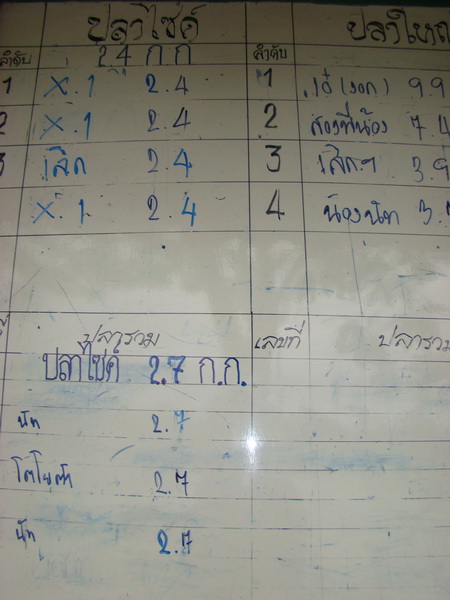 ปลาไซค์ ปลาใหญ
2.4 ก.ก
ลำดับ ลำดับ
1 X.1 2.4 1 เอ๋ (รอก) 9.9
2 X.1 2.4 2 สองพี่น้อง 7.4
3 เลิก 2.4 3 3.9
X.1 2.4 4 น้องนัท 3.
ปลารวม เลขที่ ปลารวม
ปลาไซค์ 2.7 ก.ก.
นัท 2.7
โตโยต้า 2.7
นัท 2.7